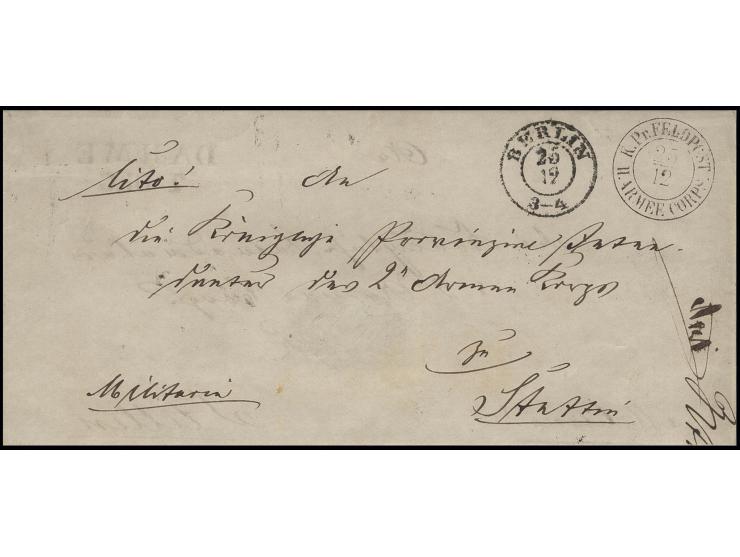 BERLIN
25
12
3-4
K.Pr.FELDPOST
25
12
II. ARMEE CORPS
Cito!
An
die Königliche Provinzial Inten-
dantur des 2n Armee Korps
zu
Stettin
Militaria